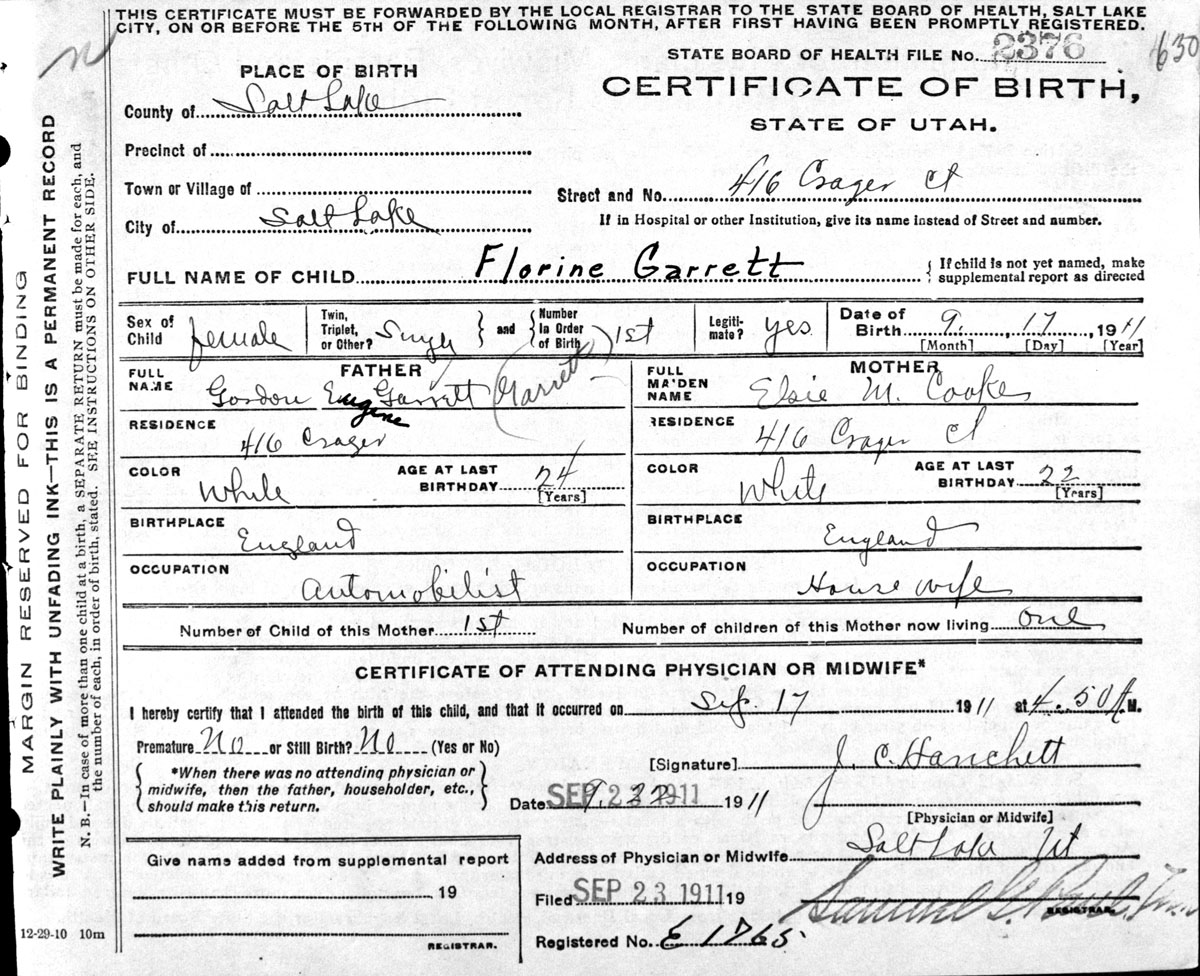 THIS CERTIFICATE MUST BE FORWARDED BY THE LOCAL REGISTRAR TO THE STATE BOARD OF HEALTH, SALT LAKE
CITY, ON OR BEFORE THE 5TH OF THE FOLLOWING MONTH, AFTER FIRST HAVING BEEN PROMPTLY REGISTERED.
STATE BOARD OF HEALTH FILE No. 2376
630
PLACE OF BIRTH
CERTIFICATE OF BIRTH,
STATE OF UTAH.
County of Salt Lake
Precinct of
Town or Village of
Street and No. 416 Crager Ct
City of Salt Lake
If in Hospital or other Institution, give its name instead of Street and number.
FULL NAME OF CHILD Florine Garrett
{ If child is not yet named, make
supplemental report as directed
Sex of Child female
Twin, Triplet, or Other? Single } and { Number In Order of Birth 1st
Legiti-mate? yes
Date of Birth 9 17, 1911
[Month] [Day] [Year]
FATHER
FULL NAME Gordon Eugene Garrett (Garrett)
MOTHER
FULL MAIDEN NAME Elsie M. Cooke
RESIDENCE 416 Crager
RESIDENCE 416 Crager Ct
COLOR White
AGE AT LAST BIRTHDAY 24 [Years]
COLOR White
AGE AT LAST BIRTHDAY 22 [Years]
BIRTHPLACE England
BIRTHPLACE England
OCCUPATION Automobilist
OCCUPATION House wife
Number of Child of this Mother 1st
Number of children of this Mother now living one
CERTIFICATE OF ATTENDING PHYSICIAN OR MIDWIFE*
I hereby certify that I attended the birth of this child, and that it occurred on Sep. 17 1911 at 4.50 A.M.
Premature No or Still Birth? No (Yes or No)
{ *When there was no attending physician or
midwife, then the father, householder, etc.,
should make this return. }
[Signature] J. C. Hanchett
Date SEP 23 1911 1911
[Physician or Midwife]
Give name added from supplemental report
19
REGISTRAR.
Address of Physician or Midwife Salt Lake Ut
Filed SEP 23 1911 19
Samuel G. Paul
REGISTRAR.
Registered No. E 1765
12-29-10 10m
MARGIN RESERVED FOR BINDING
WRITE PLAINLY WITH UNFADING INK—THIS IS A PERMANENT RECORD
N. B.—In case of more than one child at a birth, a SEPARATE RETURN must be made for each, and
the number of each, in order of birth, stated. SEE INSTRUCTIONS ON OTHER SIDE.